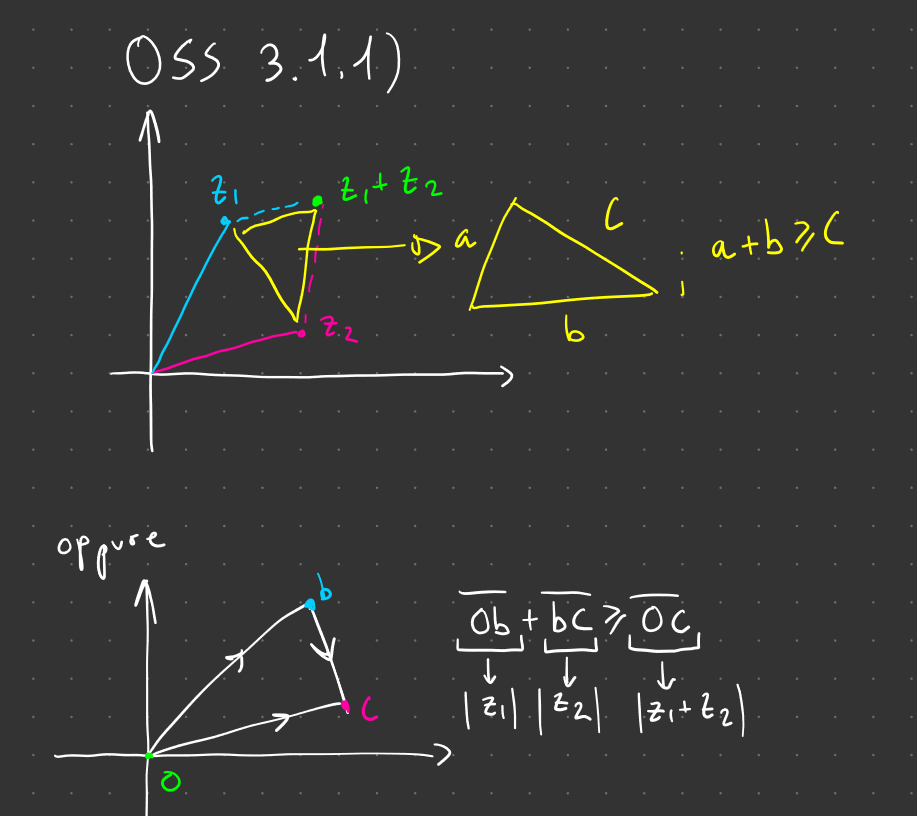 OSS 3.1.1)
z₁
z₁ + z₂
z₂
a
b
C
; a + b ⩾ C
oppure
b
C
O
Ob + bC ⩾ OC
|z₁| |z₂| |z₁ + z₂|